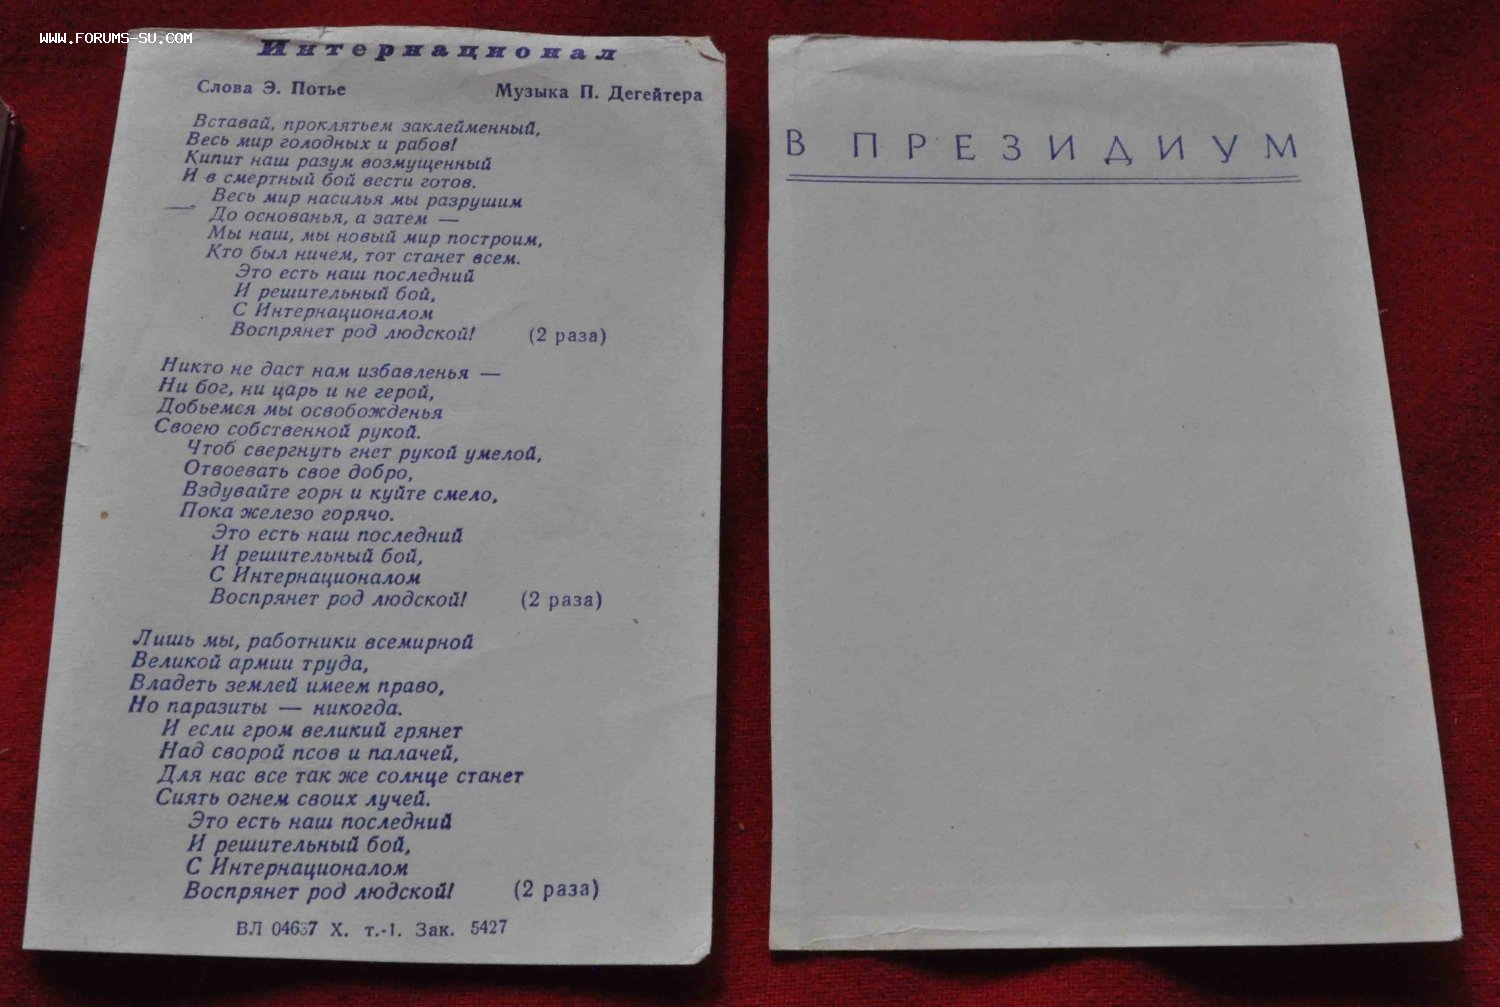 www.forums-su.com
Интернационал
Слова Э. Потье Музыка П. Дегейтера
Вставай, проклятьем заклейменный,
Весь мир голодных и рабов!
Кипит наш разум возмущенный
И в смертный бой вести готов.
Весь мир насилья мы разрушим
До основанья, а затем —
Мы наш, мы новый мир построим,
Кто был ничем, тот станет всем.
Это есть наш последний
И решительный бой,
С Интернационалом
Воспрянет род людской! (2 раза)
Никто не даст нам избавленья —
Ни бог, ни царь и не герой,
Добьемся мы освобожденья
Своею собственной рукой.
Чтоб свергнуть гнет рукой умелой,
Отвоевать свое добро,
Вздувайте горн и куйте смело,
Пока железо горячо.
Это есть наш последний
И решительный бой,
С Интернационалом
Воспрянет род людской! (2 раза)
Лишь мы, работники всемирной
Великой армии труда,
Владеть землей имеем право,
Но паразиты — никогда.
И если гром великий грянет
Над сворой псов и палачей,
Для нас все так же солнце станет
Сиять огнем своих лучей.
Это есть наш последний
И решительный бой,
С Интернационалом
Воспрянет род людской! (2 раза)
ВЛ Х. т.-1. Зак. 5427
В ПРЕЗИДИУМ